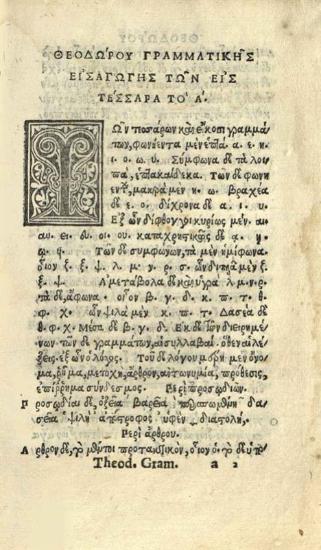 ΘΕΟΔΩΡΟΥ ΓΡΑΜΜΑΤΙΚΗΣ
ΕΙΣΑΓΩΓΗΣ ΤΩΝ ΕΙΣ
ΤΕΣΣΑΡΑ ΤΟ Α.
ΤΩν τεσσάρων καὶ εἴκοσι γραμμά
των, φωνήεντα μὲν ἑπτὰ. α. ε. η.
ι. ο. ω. υ. Σύμφωνα δὲ τὰ λοι
πὰ, ἑπτακαίδεκα. Τῶν δὲ φωνη
έντων, μακρὰ μὲν η. ω. βραχέα
δὲ ε. ο. δίχρονα δὲ α. ι. υ.
Ἐξ ὧν δίφθογγοι κυρίως μὲν. αι.
αυ. ει. ευ. οι. ου. καταχρηστικῶς δὲ ᾳ. ῃ.
ῳ. Τῶν δὲ συμφώνων, τὰ μὲν ἡμίφωνα.
οἷον ζ. ξ. ψ. λ. μ. ν. ρ. σ. ὧν διπλᾶ μὲν ζ.
ξ. ψ. Ἀμετάβολα δὲ καὶ ὑγρὰ λ. μ. ν. ρ.
τὰ δὲ, ἄφωνα. οἷον β. γ. δ. κ. π. τ. θ.
φ. χ. ὧν ψιλὰ μὲν κ. π. τ. Δασέα δὲ
θ. φ. χ. Μέσα δὲ β. γ. δ. Ἐκ δὲ τῶν διῃρημέ
νων τῶν δὲ γραμμάτων, αἱ συλλαβαί. ὅθεν αἱ λέ
ξεις. ἐξ ὧν ὁ λόγος. Τοῦ δὲ λόγου μέρη μὲν ὄνο
μα, ῥῆμα, μετοχὴ, ἄρθρον, ἀντωνυμία, πρόθεσις,
ἐπίρρημα σύνδεσμος. Περὶ προσωδιῶν.
Προσῳδίαι δὲ, ὀξεῖα βαρεῖα περισπωμένη δα
σεῖα ψιλὴ ἀπόστροφος ὑφὲν διαστολή.
Περὶ ἄρθρου.
Ἄρθρον δὲ, τὸ μέν τοι προτακτικὸν, οἷον ὁ. τὸ δὲ ὑπο
Theod. Gram. a 2